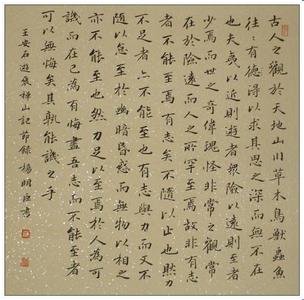 古人之觀於天地山川草木鳥獸蟲魚
往〻有德得以求其思之深而無不在
也夫夷以近則遊者眾險以遠則至者
少焉而世之奇偉瑰怪非常之觀常
在於險遠而人之所罕至焉故非有志
不能至焉有志矣不隨以止也然力
不足者亦不能至也有志與力而又不
隨以怠至於幽暗昏惑而無物以相之
亦不能至也然力足以至焉於人為可
譏而在己為有悔盡吾志而不能至者
可以無悔矣其孰能譏之乎
王安石遊褒禪山記節錄 楊明臣書